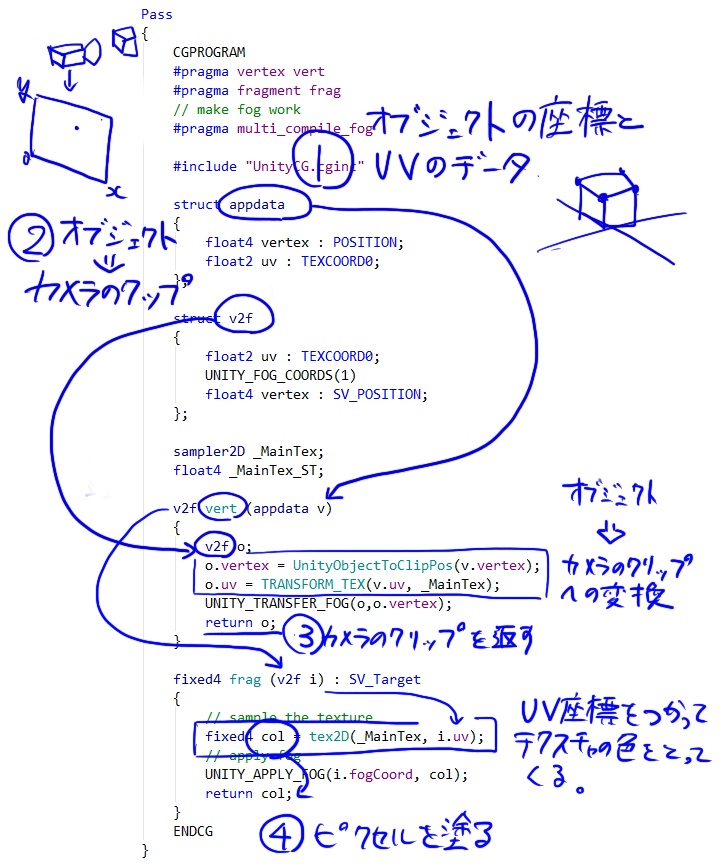 Pass
{
CGPROGRAM
#pragma vertex vert
#pragma fragment frag
// make fog work
#pragma multi_compile_fog
オブジェクトの座標と
UVのデータ
①
y
o
x
#include "UnityCG.cginc"
struct appdata
{
float4 vertex : POSITION;
float2 uv : TEXCOORD0;
};
② オブジェクト
⇓
カメラのクップ
struct v2f
{
float2 uv : TEXCOORD0;
UNITY_FOG_COORDS(1)
float4 vertex : SV_POSITION;
};
sampler2D _MainTex;
float4 _MainTex_ST;
v2f vert (appdata v)
{
v2f o;
o.vertex = UnityObjectToClipPos(v.vertex);
o.uv = TRANSFORM_TEX(v.uv, _MainTex);
UNITY_TRANSFER_FOG(o,o.vertex);
return o;
}
オブジェクト
⇓
カメラのクリップ
への変換
③ カメラのクリップを返す
fixed4 frag (v2f i) : SV_Target
{
// sample the texture
fixed4 col = tex2D(_MainTex, i.uv);
// apply fog
UNITY_APPLY_FOG(i.fogCoord, col);
return col;
}
ENDCG
}
UV座標をつかって
テクスチャの色をとって
くる。
④ ピクセルを塗る